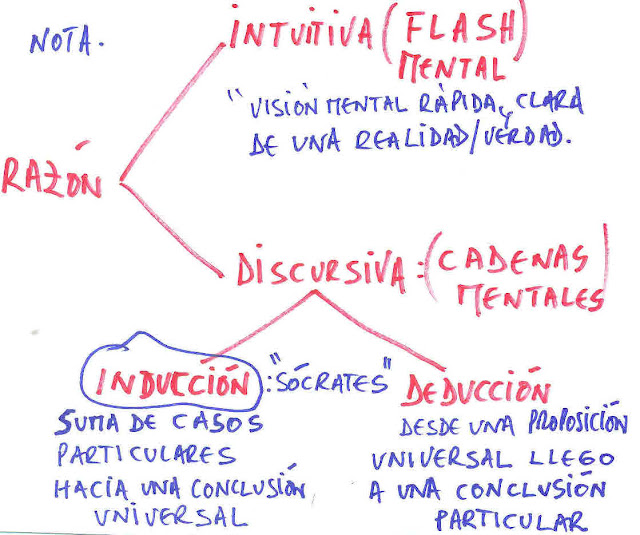 NOTA.
INTUITIVA (FLASH
MENTAL)
"VISIÓN MENTAL RÀPIDA, y CLARA
DE UNA REALIDAD/VERDAD.
RAZÓN
DISCURSIVA: (CADENAS
MENTALES)
INDUCCIÓN : "SÓCRATES"
SUMA DE CASOS
PARTICULARES
HACIA UNA CONCLUSIÓN
UNIVERSAL
DEDUCCIÓN
DESDE UNA PROPOSICIÓN
UNIVERSAL LLEGO
A UNA CONCLUSIÓN
PARTICULAR